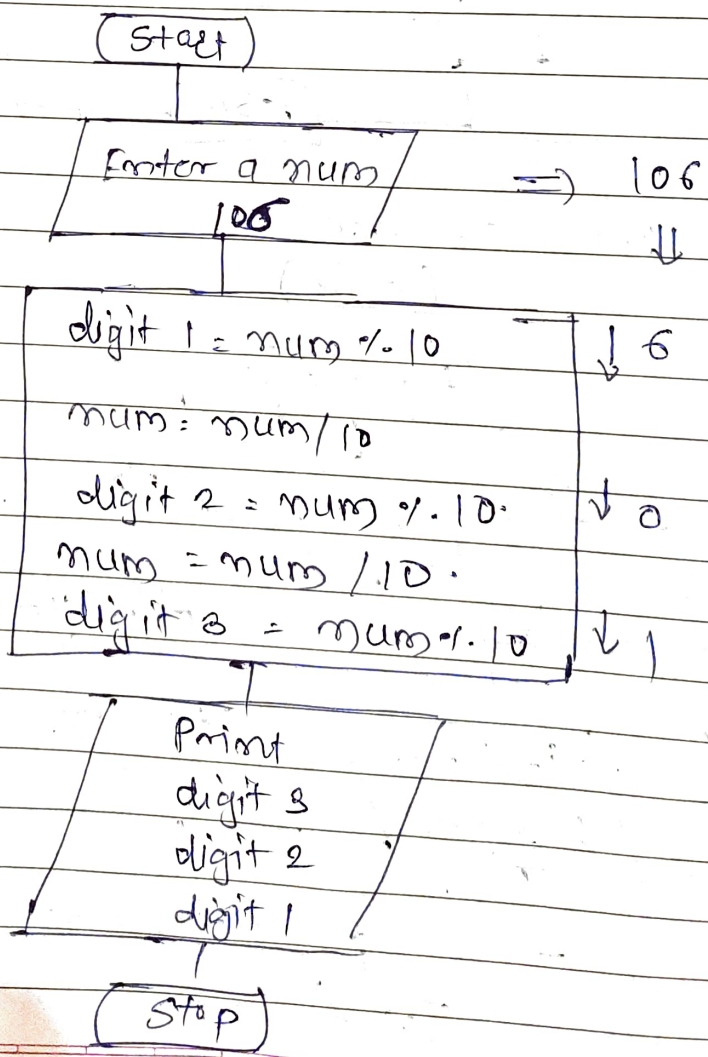 Start
Enter a num
106
=> 106
⇓
digit 1 = num % 10 ↓ 6
num = num / 10
digit 2 = num % 10. ↓ 0
num = num / 10.
digit 3 = num % 10 ↓ 1
Print
digit 3
digit 2
digit 1
Stop